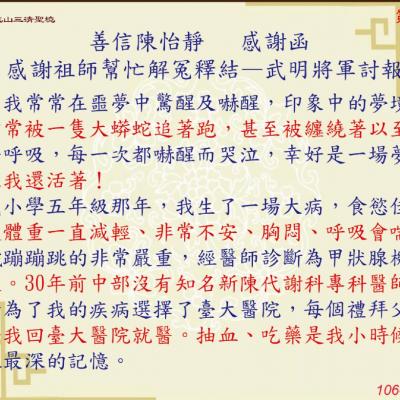 山三清聖境
善信陳怡靜 感謝函
感謝祖師幫忙解冤釋結—武明將軍討報
我常常在噩夢中驚醒及嚇醒，印象中的夢境
常被一隻大蟒蛇追著跑，甚至被纏繞著以至
呼吸，每一次都嚇醒而哭泣，幸好是一場夢
我還活著！
小學五年級那年，我生了一場大病，食慾佳
體重一直減輕、非常不安、胸悶、呼吸會喘
蹦蹦跳的非常嚴重，經醫師診斷為甲狀腺機
。30年前中部沒有知名新陳代謝科專科醫師
為了我的疾病選擇了臺大醫院，每個禮拜父
我回臺大醫院就醫。抽血、吃藥是我小時候
最深的記憶。
106